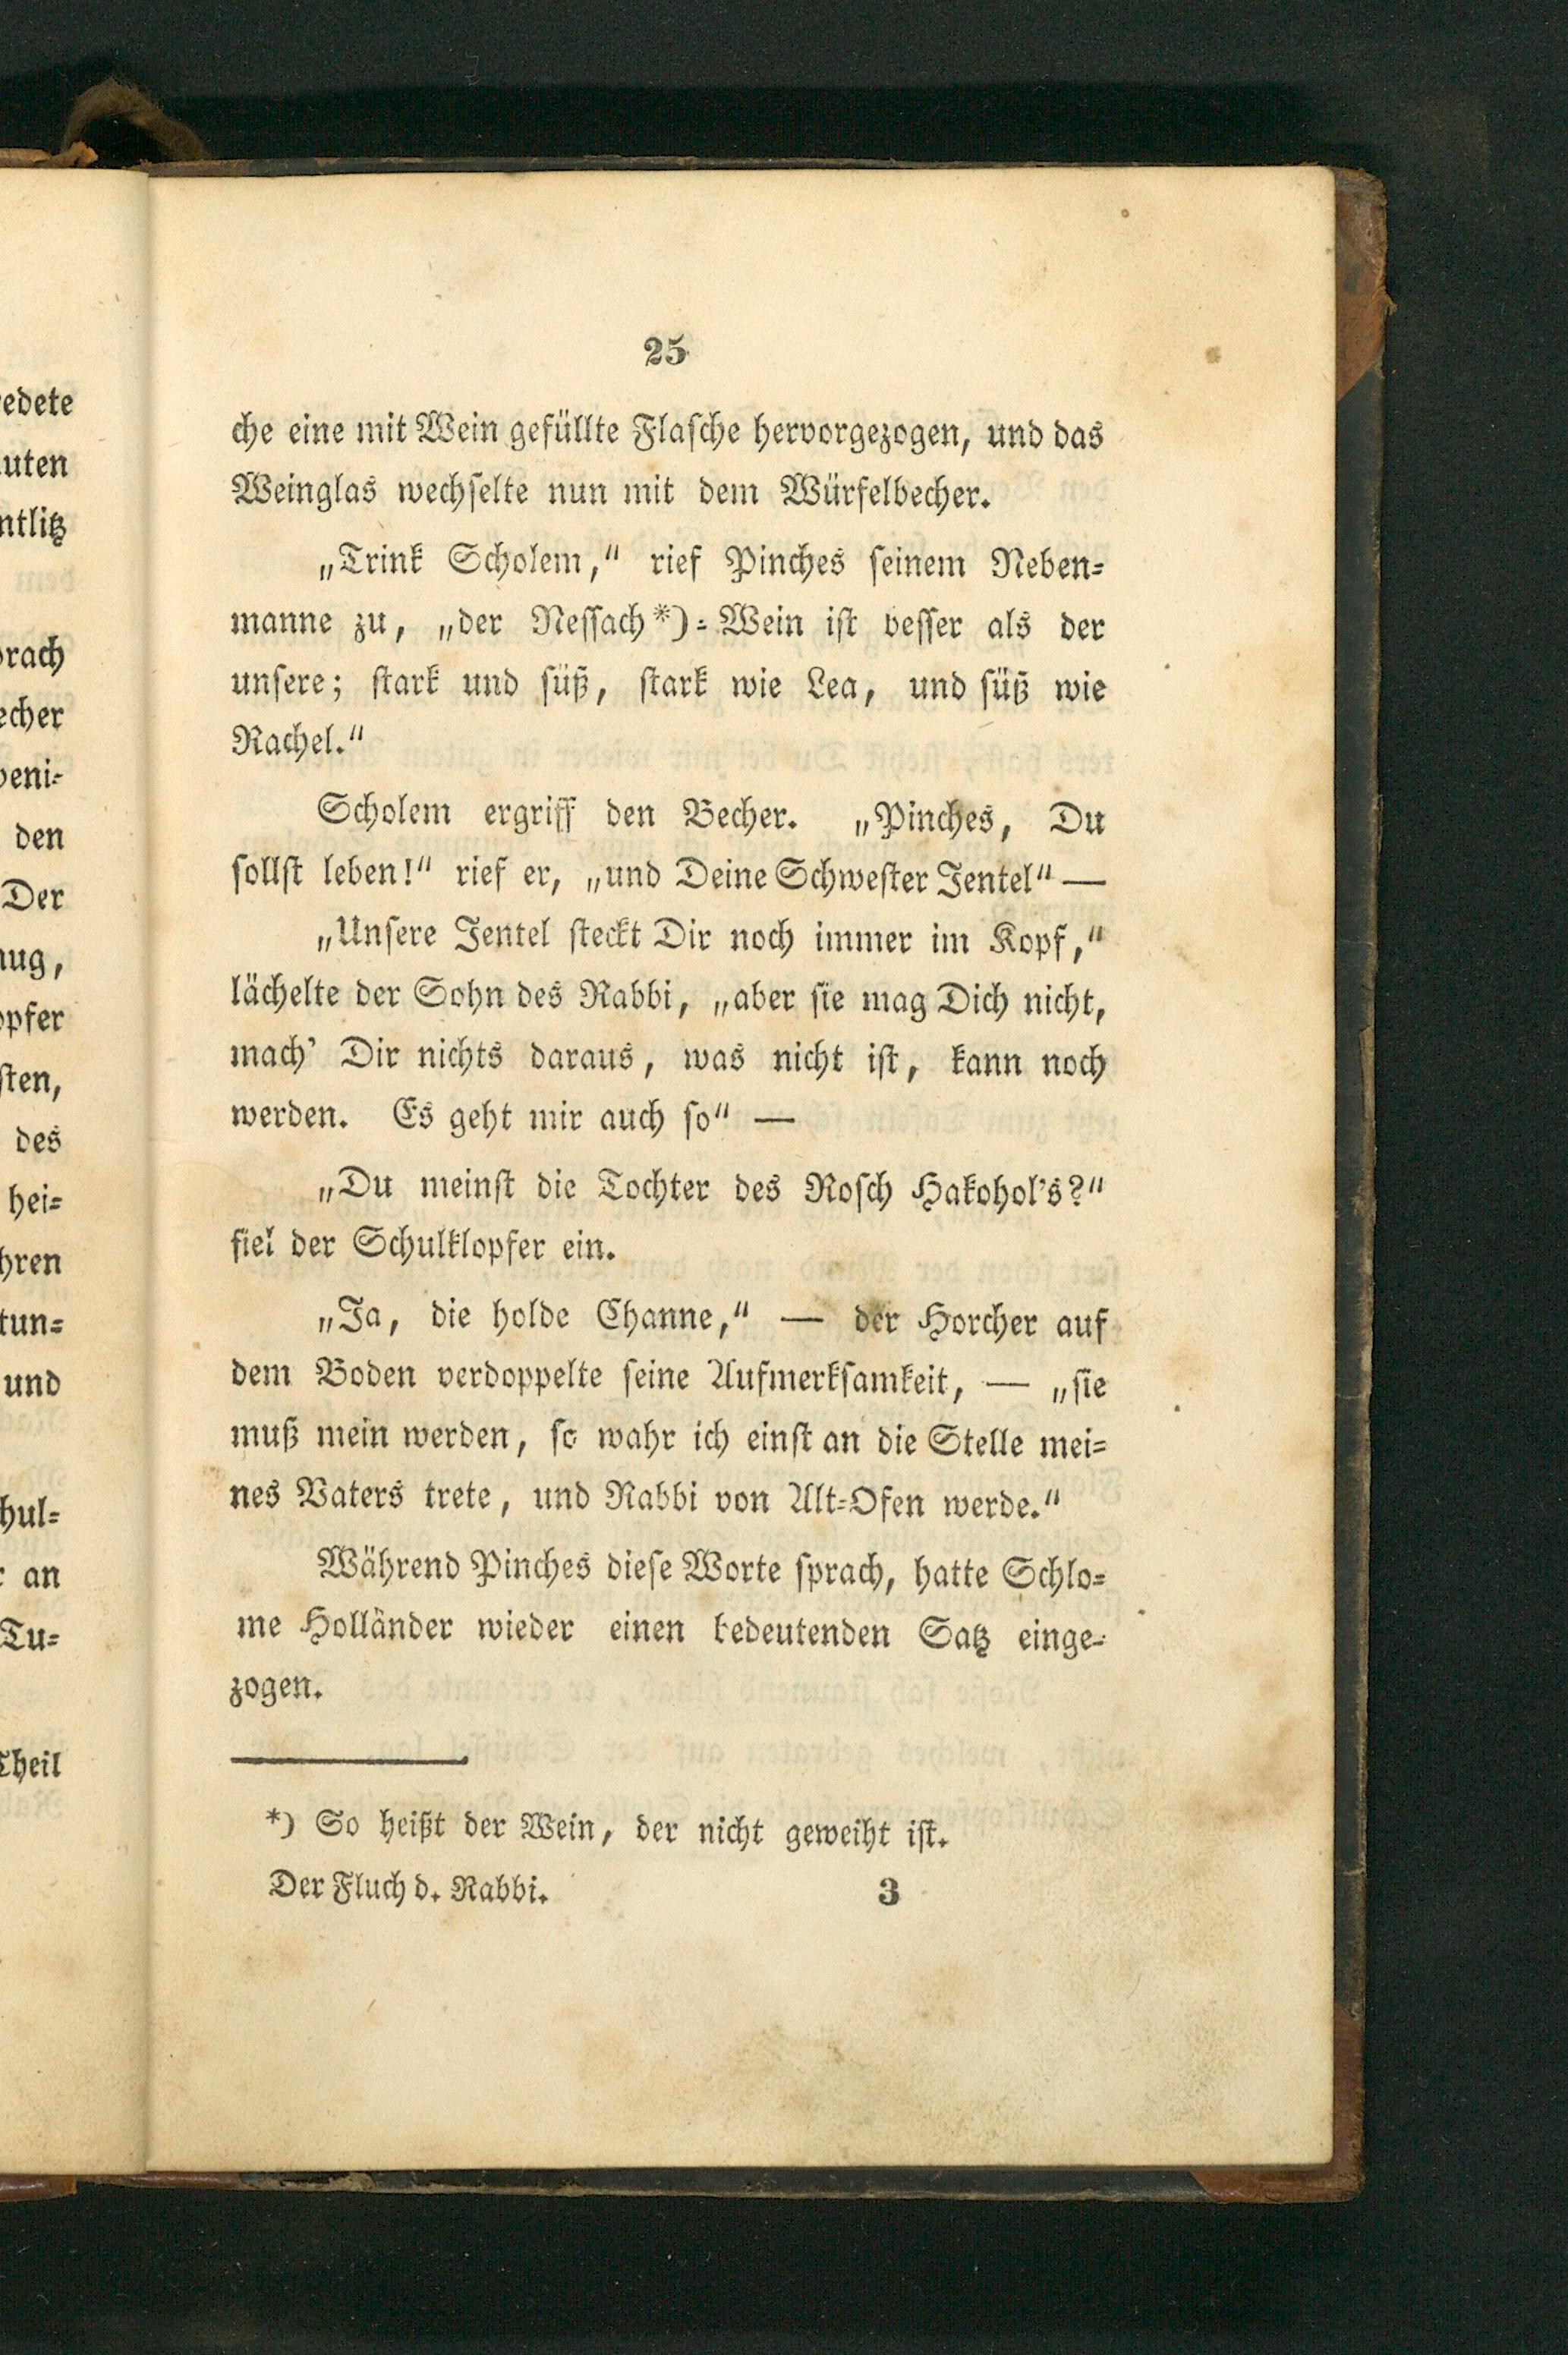 25
che eine mit Wein gefüllte Flasche hervorgezogen, und das
Weinglas wechselte nun mit dem Würfelbecher.
„Trink Scholem,“ rief Pinches seinem Neben-
manne zu, „der Nessach*)-Wein ist besser als der
unsere; stark und süß, stark wie Lea, und süß wie
Rachel.“
Scholem ergriff den Becher. „Pinches, Du
sollst leben!“ rief er, „und Deine Schwester Jentel“ —
„Unsere Jentel steckt Dir noch immer im Kopf,“
lächelte der Sohn des Rabbi, „aber sie mag Dich nicht,
mach' Dir nichts daraus, was nicht ist, kann noch
werden. Es geht mir auch so“ —
„Du meinst die Tochter des Rosch Hakohol's?“
fiel der Schulklopfer ein.
„Ja, die holde Channe,“ — der Horcher auf
dem Boden verdoppelte seine Aufmerksamkeit, — „sie
muß mein werden, so wahr ich einst an die Stelle mei-
nes Vaters trete, und Rabbi von Alt-Ofen werde.“
Während Pinches diese Worte sprach, hatte Schlo-
me Holländer wieder einen bedeutenden Satz einge-
zogen.
*) So heißt der Wein, der nicht geweiht ist.
Der Fluch d. Rabbi. 3